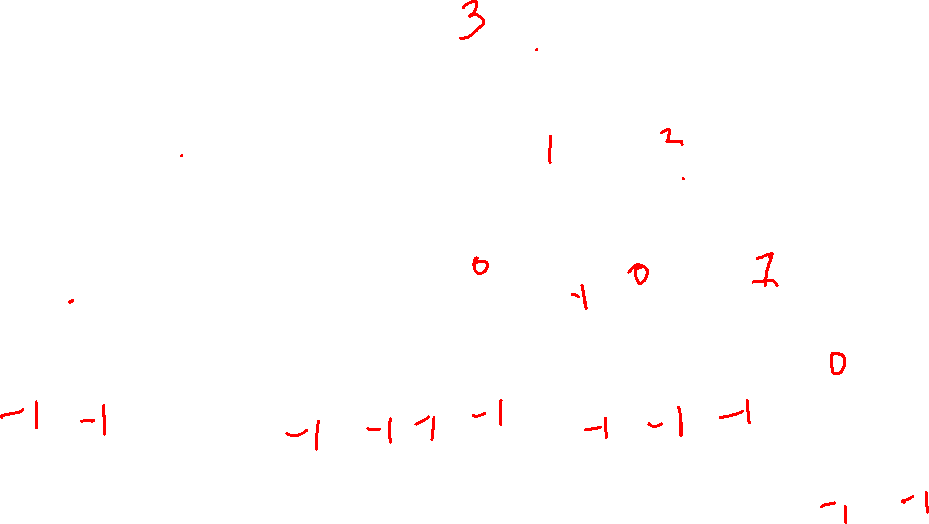 3
1 2
0 -1 0 1
0
-1 -1 -1 -1 -1 -1 -1 -1 -1
-1 -1